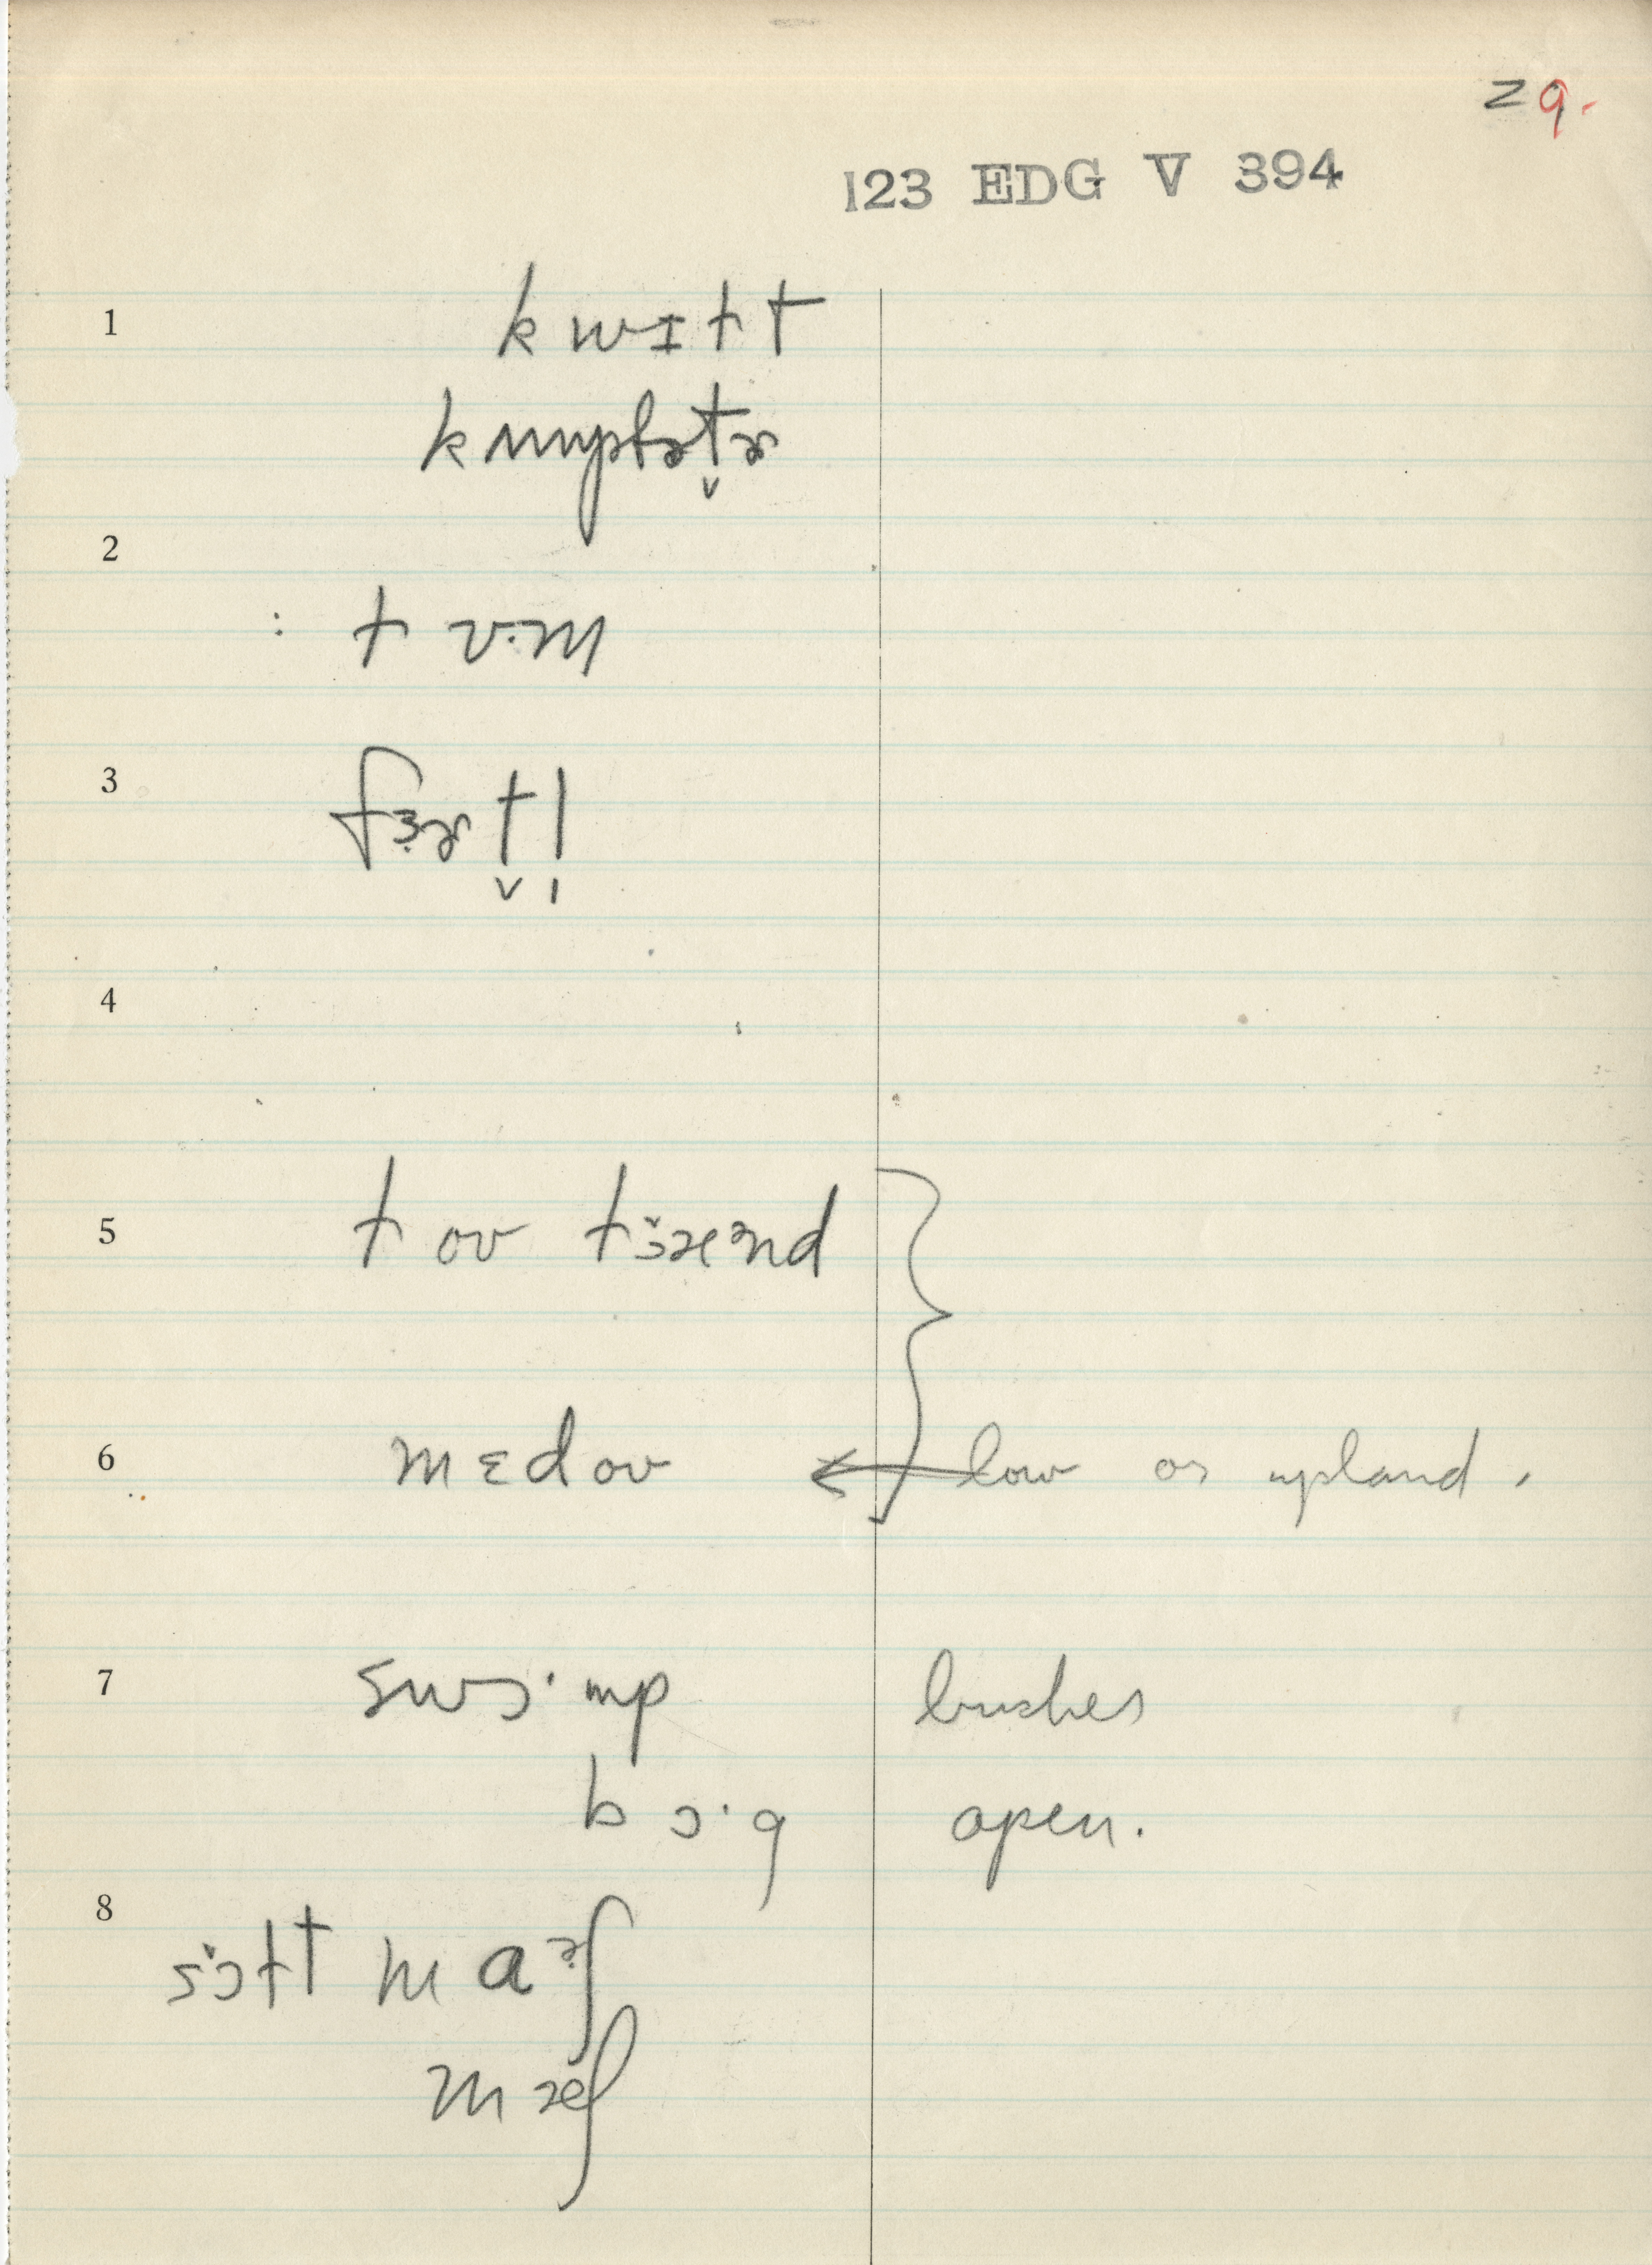 29.
123 EDG V 394
1 kwɪɫt
kʌmpfɚt̬ɚ
2
: ɫ ʋ·m
3 fɜɚt̬l̩
4
5 ɫ oʊ ɫɔ̆ænd
6 mɛdoʊ ← low or upland.
7 swɔ·mp bushes
bɔ·g open.
8 sɔɫt maɚʃ
mæʃ